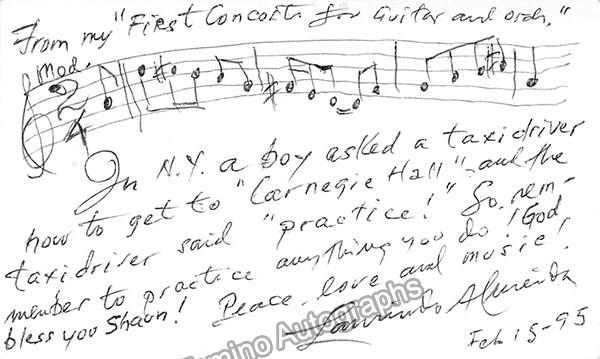 From my "First Concerto for Guitar and orch."
Mod.
2/4
In N.Y. a boy asked a taxidriver
how to get to "Carnegie Hall" and the
taxidriver said "practice!" So, rem-
member to practice anything you do! God
bless you Shaun! Peace, love and music!
Laurindo Almeida
Tamino Autographs
Feb 15-95